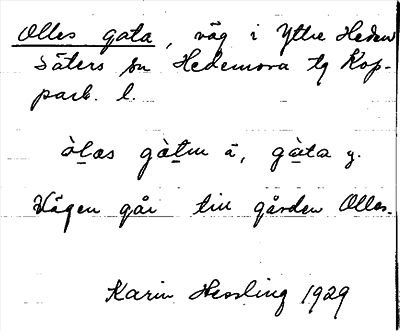 Olles gata, väg i Yttre Heden
Säters sn Hedemora tg Kop-
parb. l.
òlas gàtu ä, gàta y.
Vägen går till gården Olles.
Karin Hessling 1929